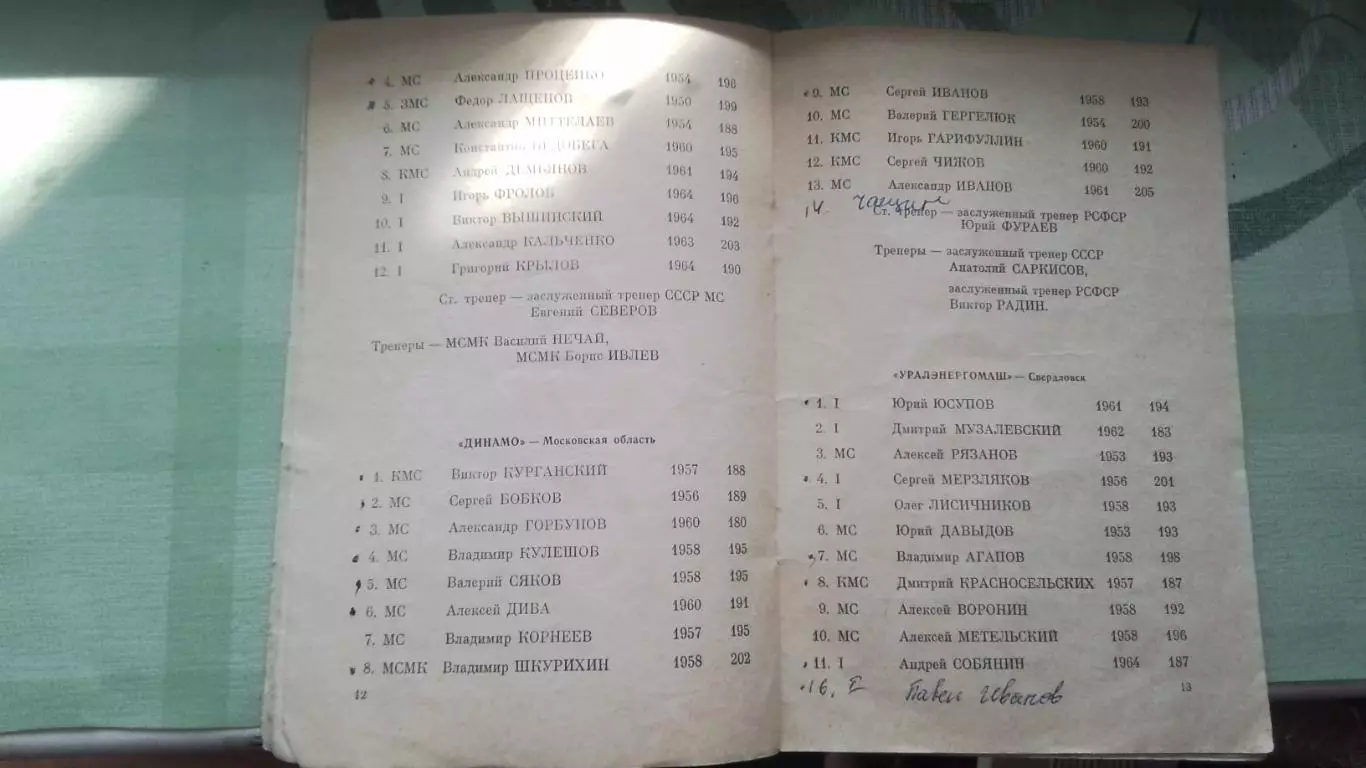 4. МС Александр ПРОЦЕНКО 1954 198
5. ЗМС Федор ЛАЩЕНОВ 1950 199
6. МС Александр 1954 188
7. МС Константин 1960 195
8. КМС Андрей ДЕМЬЯНОВ 1961 194
9. I Игорь ФРОЛОВ 1964 196
10. I Виктор ВЫШИНСКИЙ 1964 192
11. I Александр КАЛЬЧЕНКО 1963 203
12. I Григорий КРЫЛОВ 1964 190
Ст. тренер — заслуженный тренер СССР МС
Евгений СЕВЕРОВ
Тренеры — МСМК Василий НЕЧАЙ,
МСМК Борис ИВЛЕВ
«ДИНАМО» — Московская область
1. КМС Виктор КУРГАНСКИЙ 1957 188
2. МС Сергей БОБКОВ 1956 189
3. МС Александр ГОРБУНОВ 1960 180
4. МС Владимир КУЛЕШОВ 1958 195
5. МС Валерий СЯКОВ 1958 195
6. МС Алексей ДИВА 1960 191
7. МС Владимир КОРНЕЕВ 1957 195
8. МСМК Владимир ШКУРИХИН 1958 202
12
9. МС Сергей ИВАНОВ 1958 193
10. МС Валерий ГЕРГЕЛЮК 1954 200
11. КМС Игорь ГАРИФУЛЛИН 1960 191
12. КМС Сергей ЧИЖОВ 1960 192
13. МС Александр ИВАНОВ 1961 205
14.
Ст. тренер — заслуженный тренер РСФСР
Юрий ФУРАЕВ
Тренеры — заслуженный тренер СССР
Анатолий САРКИСОВ,
заслуженный тренер РСФСР
Виктор РАДИН.
«УРАЛЭНЕРГОМАШ» — Свердловск
1. I Юрий ЮСУПОВ 1961 194
2. I Дмитрий МУЗАЛЕВСКИЙ 1962 183
3. МС Алексей РЯЗАНОВ 1953 193
4. I Сергей МЕРЗЛЯКОВ 1956 201
5. I Олег ЛИСИЧНИКОВ 1958 193
6. МС Юрий ДАВЫДОВ 1953 193
7. МС Владимир АГАПОВ 1958 198
8. КМС Дмитрий КРАСНОСЕЛЬСКИХ 1957 187
9. МС Алексей ВОРОНИН 1958 192
10. МС Алексей МЕТЕЛЬСКИЙ 1958 196
11. I Андрей СОБЯНИН 1964 187
16. I Павел Иванов
13